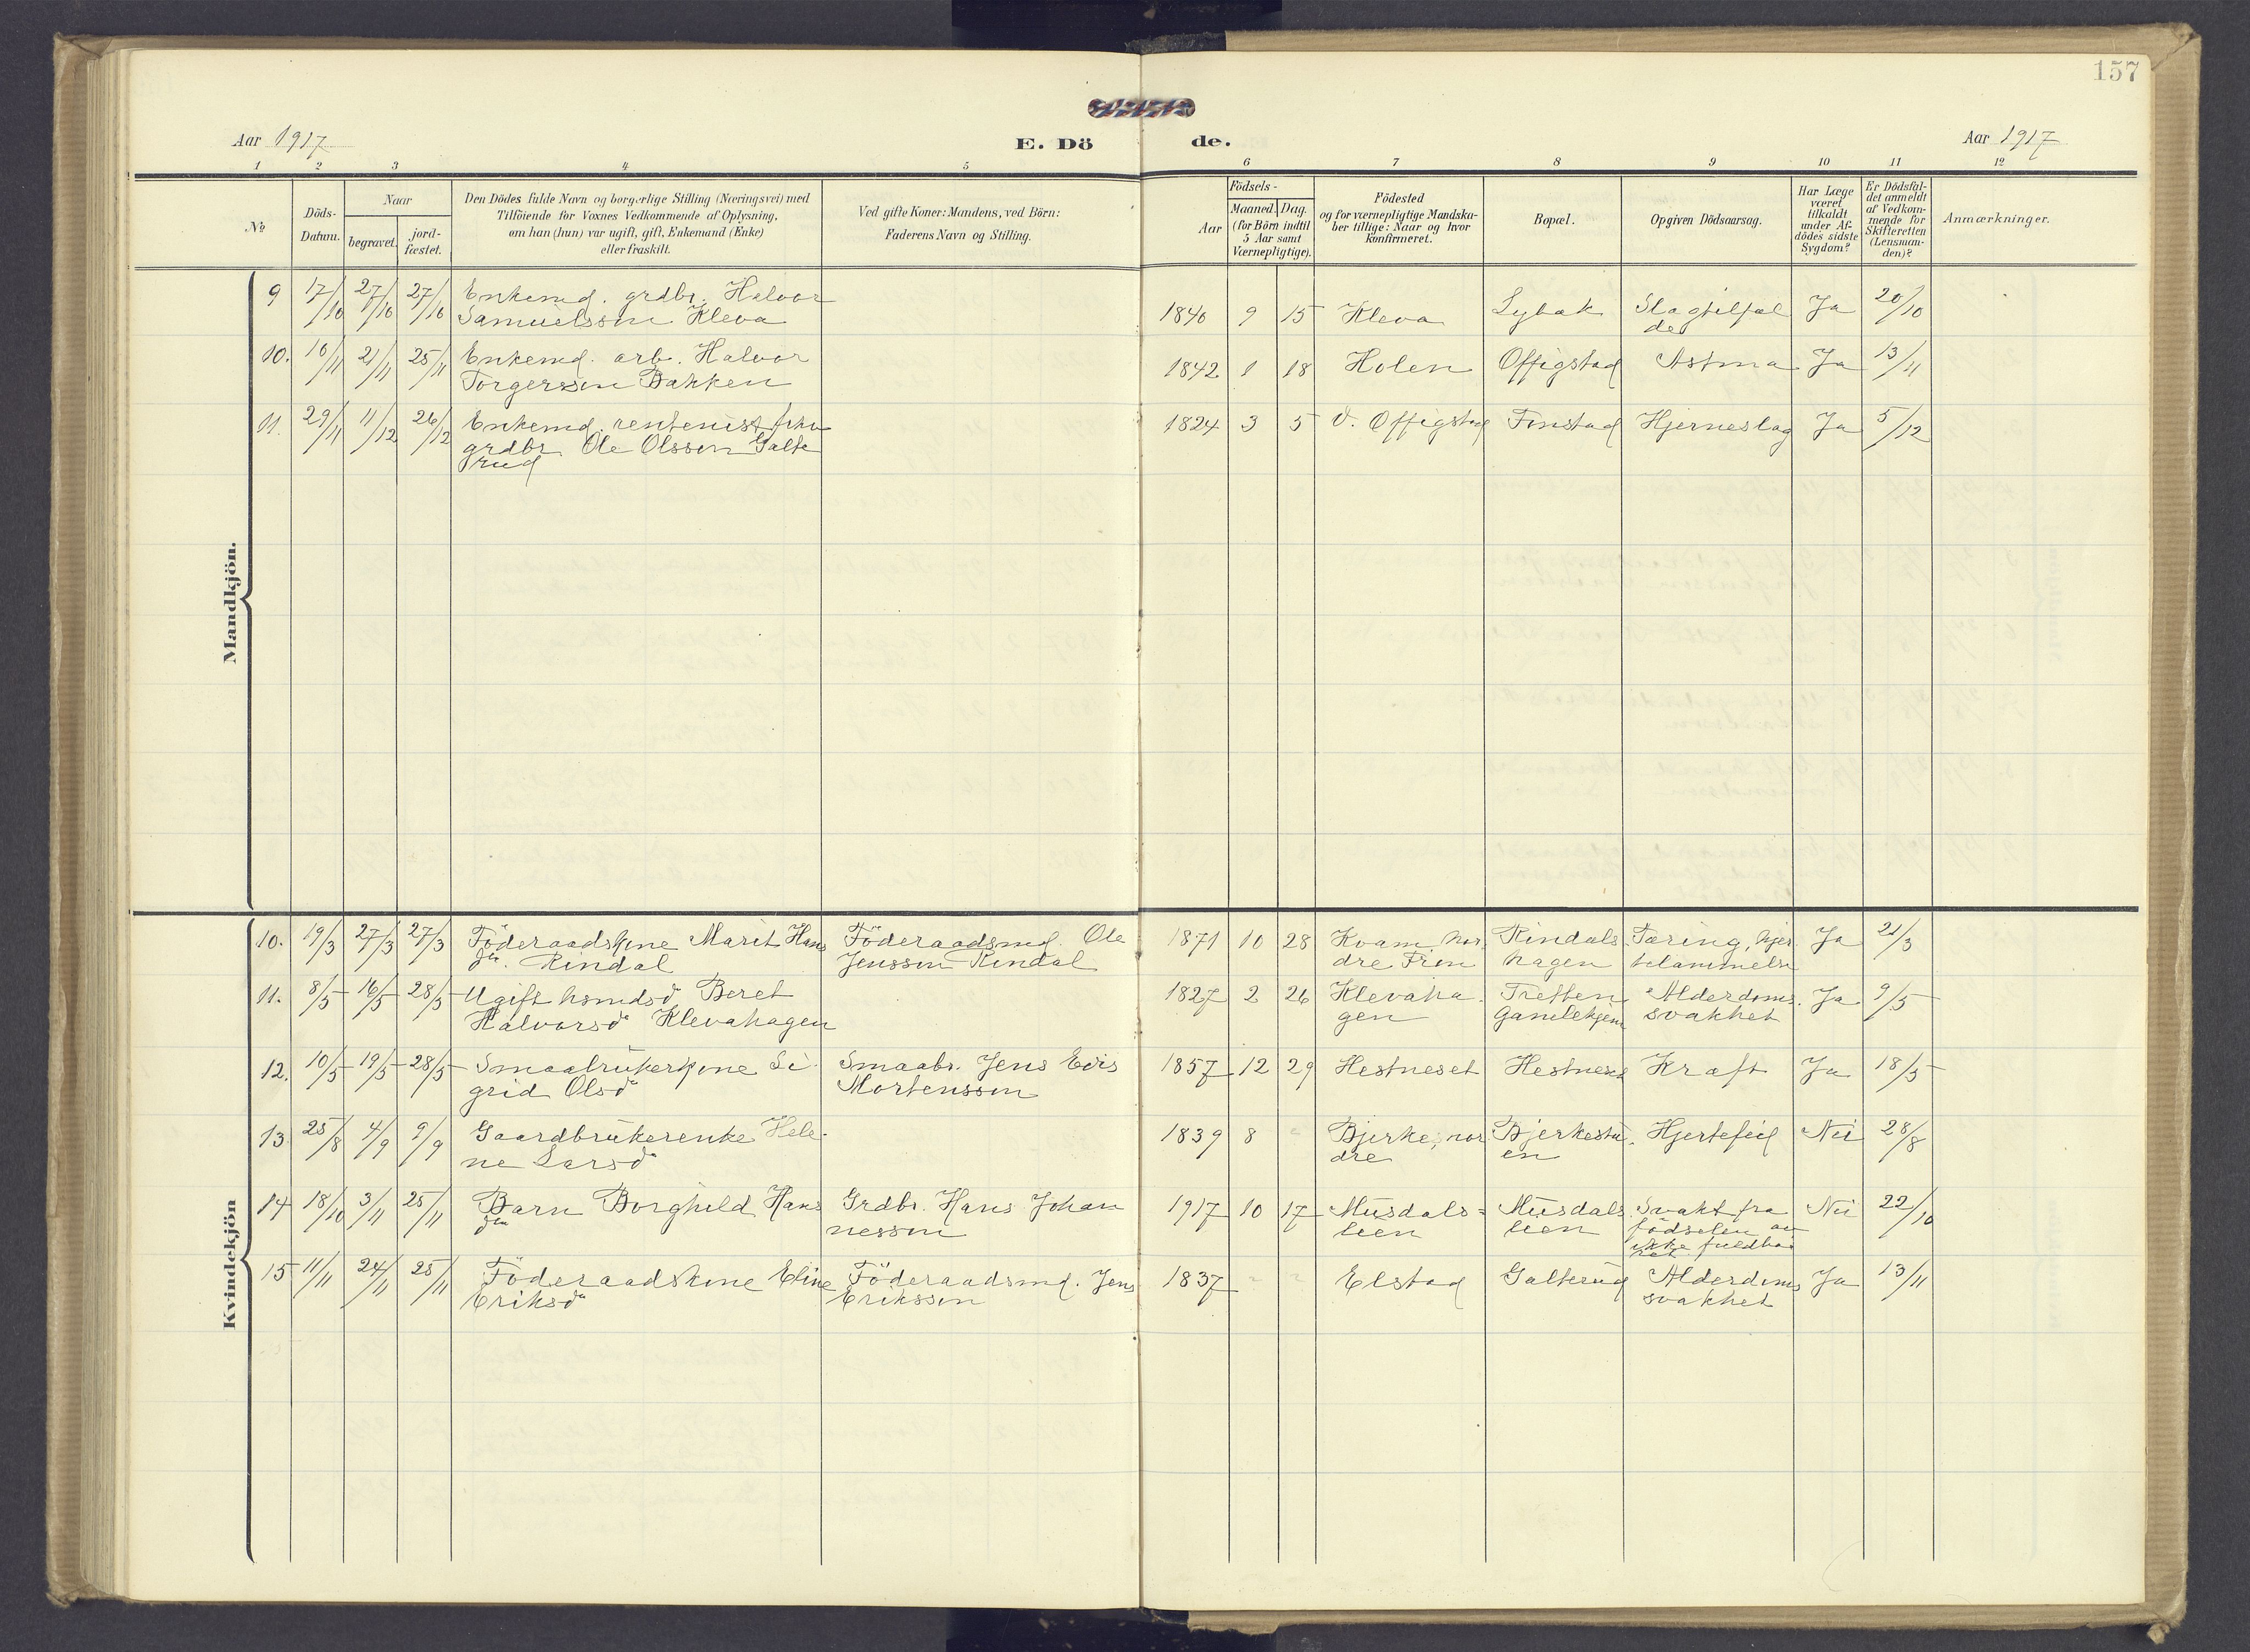 157
Aar 1917
E. Dö
de.
Aar 1917
1 2 3 4 5 6 7 8 9 10 11 12
№
Döds-
Datum.
Naar
begravet.
jord-
fæstet.
Den Dödes fulde Navn og borgerlige Stilling (Næringsvei) med
Tilföiende for Voxnes Vedkommende af Oplysning,
om han (hun) var ugift, gift, Enkemand (Enke)
eller fraskilt.
Ved gifte Koner: Mandens, ved Börn:
Faderens Navn og Stilling.
Födsels-
Aar
Maaned.
Dag.
(for Börn indtil
5 Aar samt
Værnepligtige).
Födested
og for værnepligtige Mandska-
ber tillige: Naar og hvor
konfirmeret.
Bopæl.
Opgiven Dödsaarsag.
Har Læge
været
tilkaldt
under Af-
dödes sidste
Sygdom?
Er Dödsfal-
det anmeldt
af Vedkom-
mende for
Skifteretten
(Lensman-
den)?
Anmærkninger.
Mandkjön.
9 17/10 27/10 27/10 Enkemd. grdbr. Halvor
Samuelssen Kleva
1846 9 15 Kleva Lybæk Slagtilfæl
de
Ja 20/10
10. 10/11 21/11 25/11 Enkemd. arb. Halvor
Torgerssen Bakken
1842 1 18 Holen Offigstad Astma Ja 13/11
11. 29/11 11/12 26/12 Enkemd. rentenist fhv
grdbr. Ole Olssen Galte
rud
1824 3 5 V. Offigstad Finstad Hjerneslag Ja 5/12
Kvindekjön
10. 19/3 27/3 27/3 Föderaadskone Marit Hans
dtr. Rindal
Föderaadsmd. Ole
Jenssen Rindal
1871 10 28 Kvam, nor
dre Fron
Rindals
hagen
Tæring, hjer
telammelse
Ja 21/3
11. 8/5 16/5 28/5 Ugift husmdsd. Beret
Halvorsdr Klevahagen
1827 2 26 Klevaha
gen
Tretten
gamlehjem
Alderdoms
svakhet
Ja 9/5
12. 10/5 19/5 28/5 Smaabrukerkone Si
grid Olsdr
Smaabr. Jens Edv
Mortenssen
1857 12 29 Hestneset Hestneset Kræft Ja 18/5
13. 25/8 4/9 9/9 Gaardbrukerenke Hele-
ne Larsdr
1839 8 Bjerke, nor
dre
Bjerkestu
en
Hjertefeil Nei 28/8
14 18/10 3/11 25/11 Barn Borghild Hans
dtr
Grdbr. Hans Johan
nessen
1917 10 17 Musdals=
lien
Musdals
lien
Svakt fra
födselen av
ikke fuldbaa
ret
Nei 22/10
15 11/11 24/11 25/11 Föderaadskone Eline
Eriksdr
Föderaadsmd. Jens
Erikssen
1837 Elstad Galterud Alderdoms
svakhet
Ja 13/11